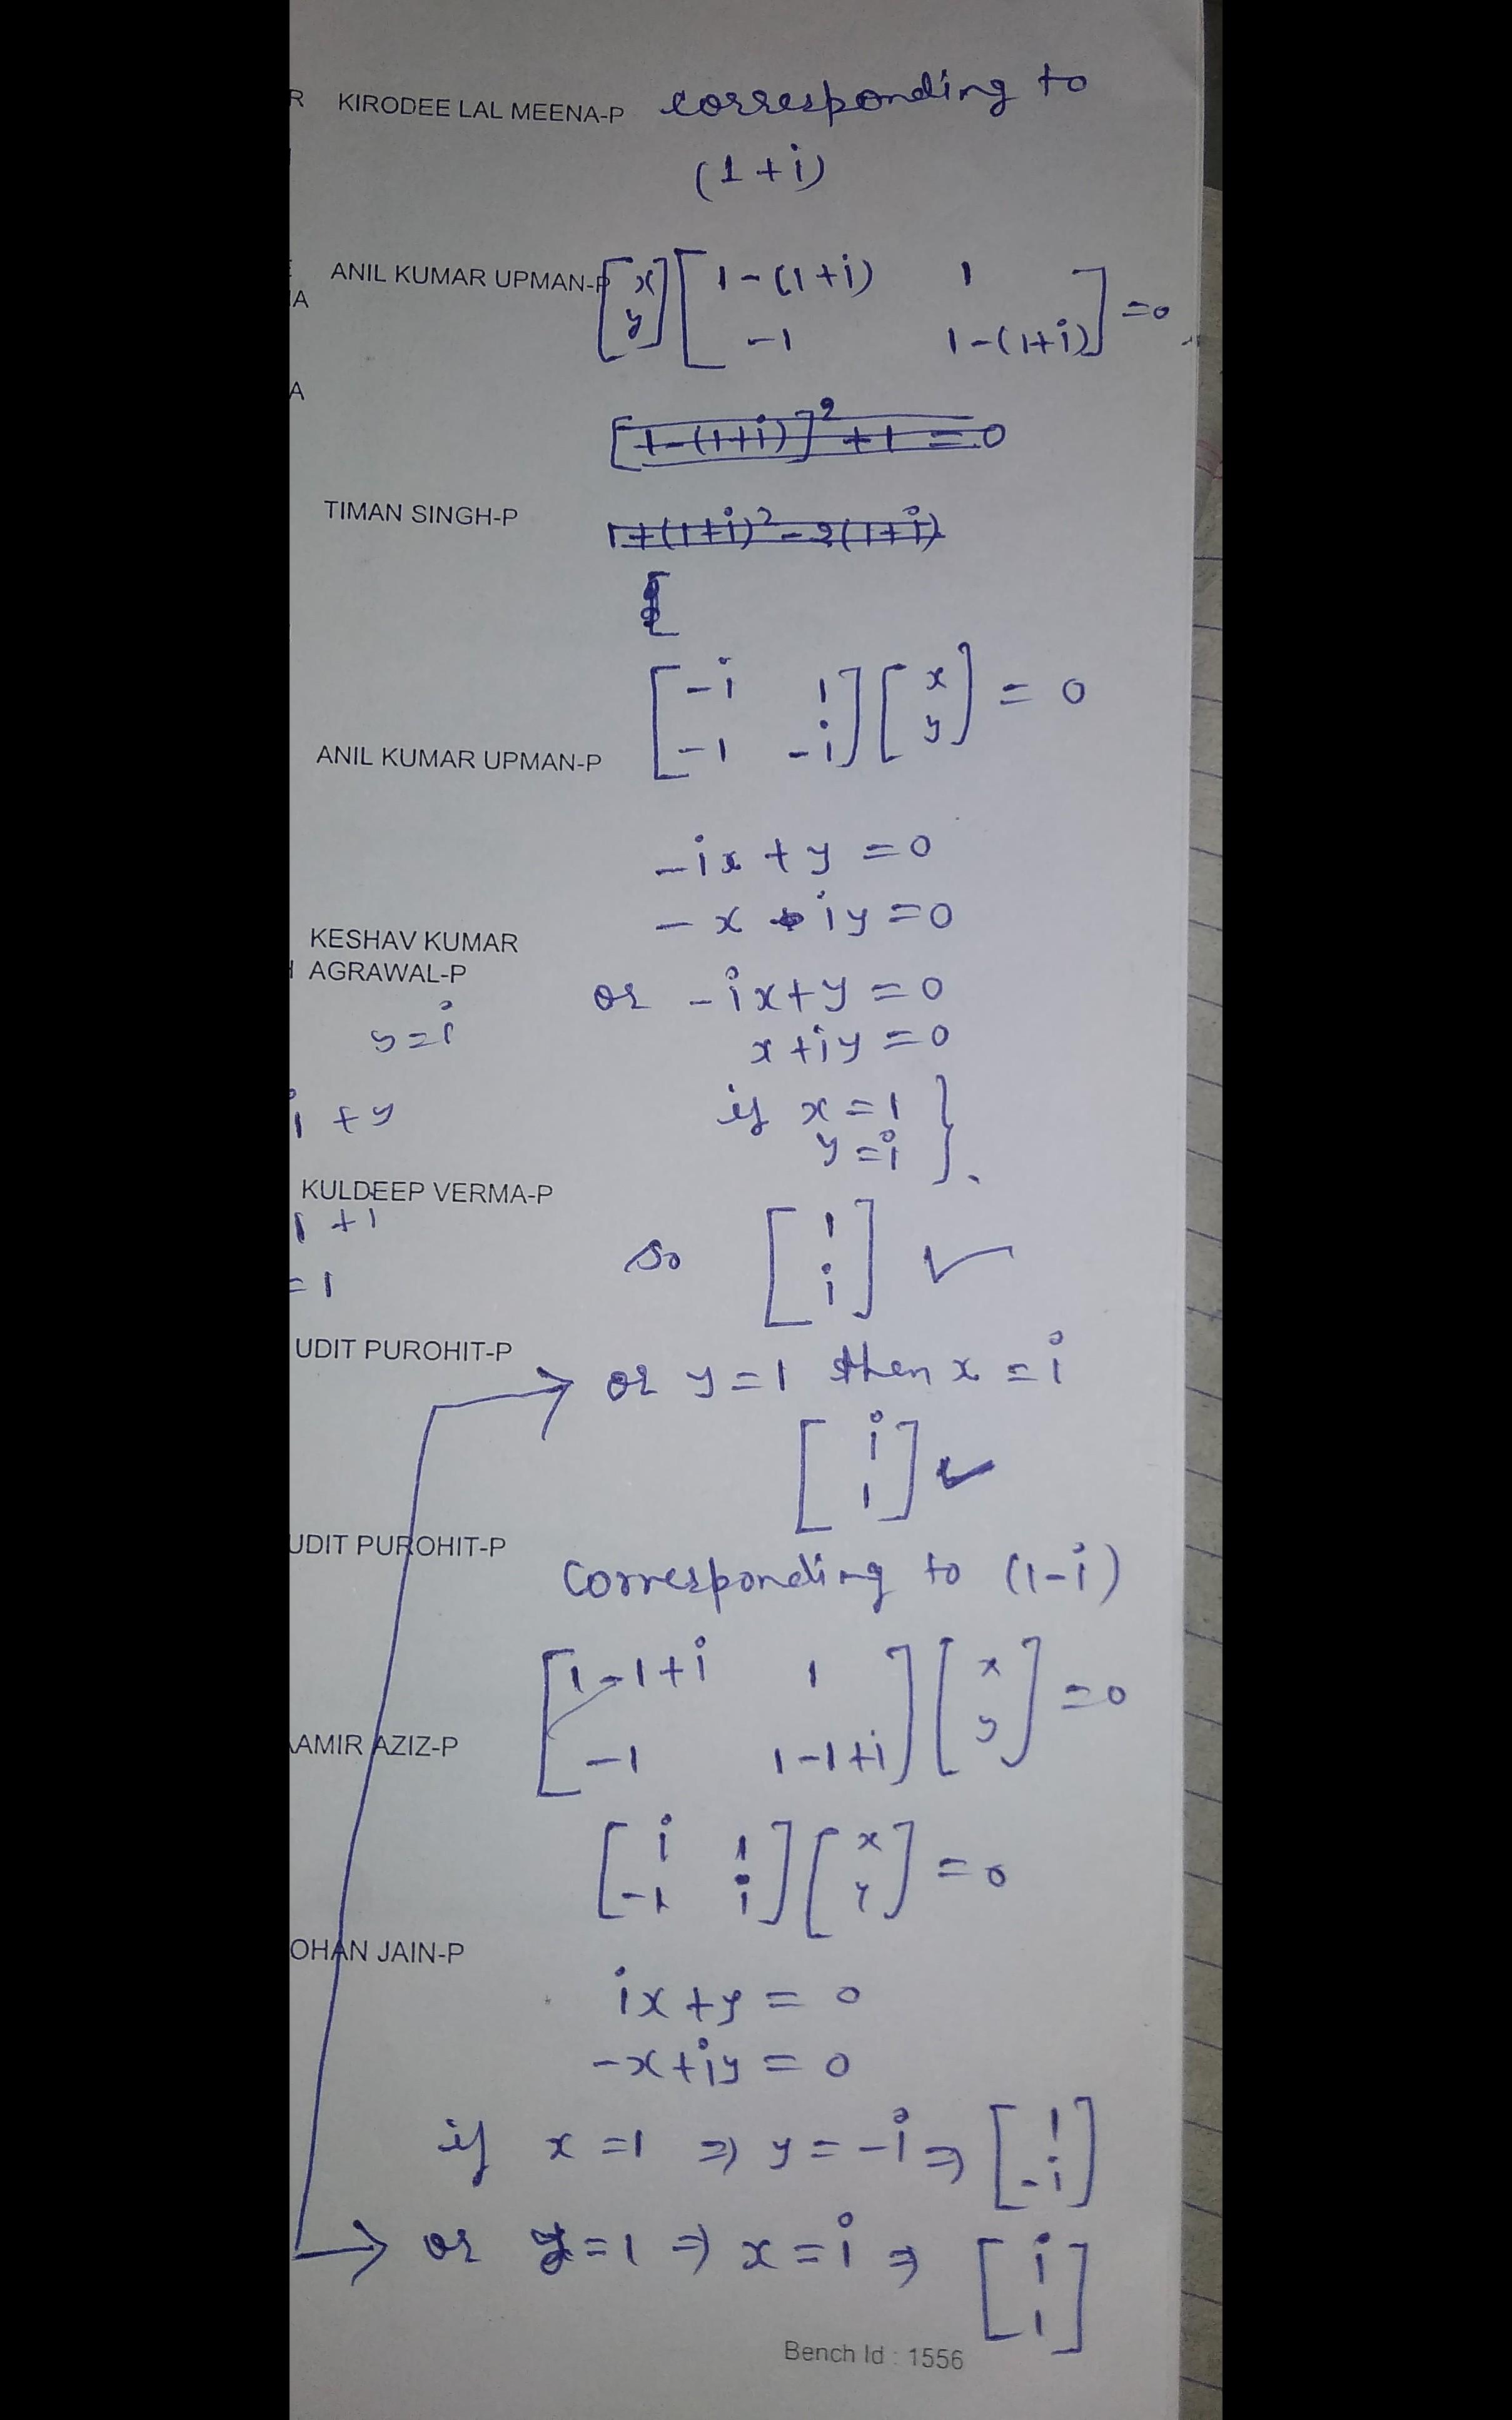 R KIRODEE LAL MEENA-P corresponding to
(1+i)
ANIL KUMAR UPMAN-P [x y] [1-(1+i) 1
A
-1 1-(1+i)] =0
A
[1-(1+i)]² +1 = 0
TIMAN SINGH-P 1+(1+i)² - 2(1+i)
[
[-i 1
-1 -i] [x y] = 0
ANIL KUMAR UPMAN-P
-ix + y = 0
- x - iy = 0
KESHAV KUMAR
H AGRAWAL-P
or -ix+y = 0
y = i
x + iy = 0
i + y
if x = 1
y = i }
KULDEEP VERMA-P
1 + 1
so [1 i] ✓
= 1
UDIT PUROHIT-P
→ or y = 1 then x = i
[i 1] ✓
UDIT PUROHIT-P
Corresponding to (1-i)
[1-1+i 1
-1 1-1+i] [x y] = 0
AAMIR AZIZ-P
[i 1
-1 i] [x y] = 0
OHAN JAIN-P
ix + y = 0
-x + iy = 0
if x = 1 ⇒ y = -i ⇒ [1 -i]
→ or y = 1 ⇒ x = i ⇒ [i 1]
Bench Id : 1556